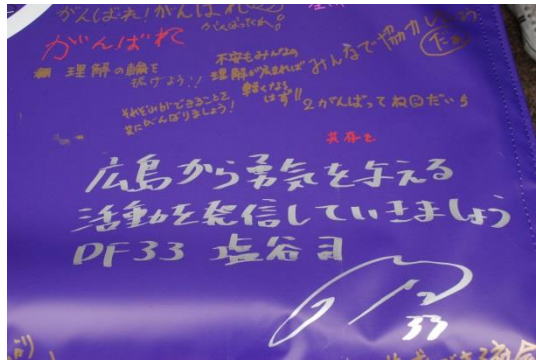 がんばれ!がんばれ
がんばってね。
がんばれ
理解の輪を
拡げよう!!
不安もみんなの
理解が広まれば
軽くなる
はず!!
みんなで協力しよう
だれ
それぞれができることを
共にがんばりましょう!
2がんばってね
だいち
共存を
広島から勇気を与える
活動を発信していきましょう
DF33 塩谷司
33